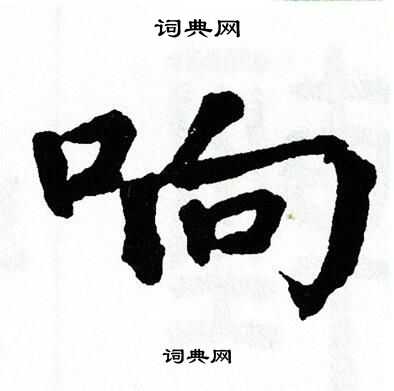 词典网
响
词典网